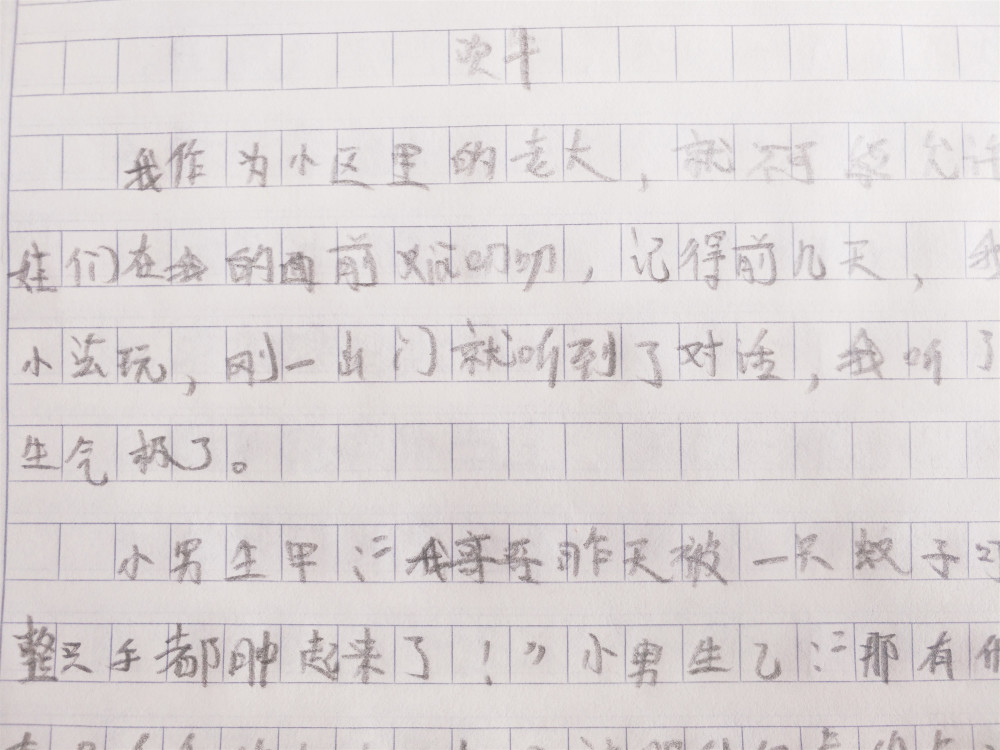 吹牛
我作为小区里的老大,就不可能允许
娃们在我的面前对话叨叨,记得前几天,我
小法玩,刚一出门就听到了对话,我听了
生气极了。
小男生甲:“我哥哥昨天被一只蚊子叮
整只手都肿起来了!”小男生乙:“那有什